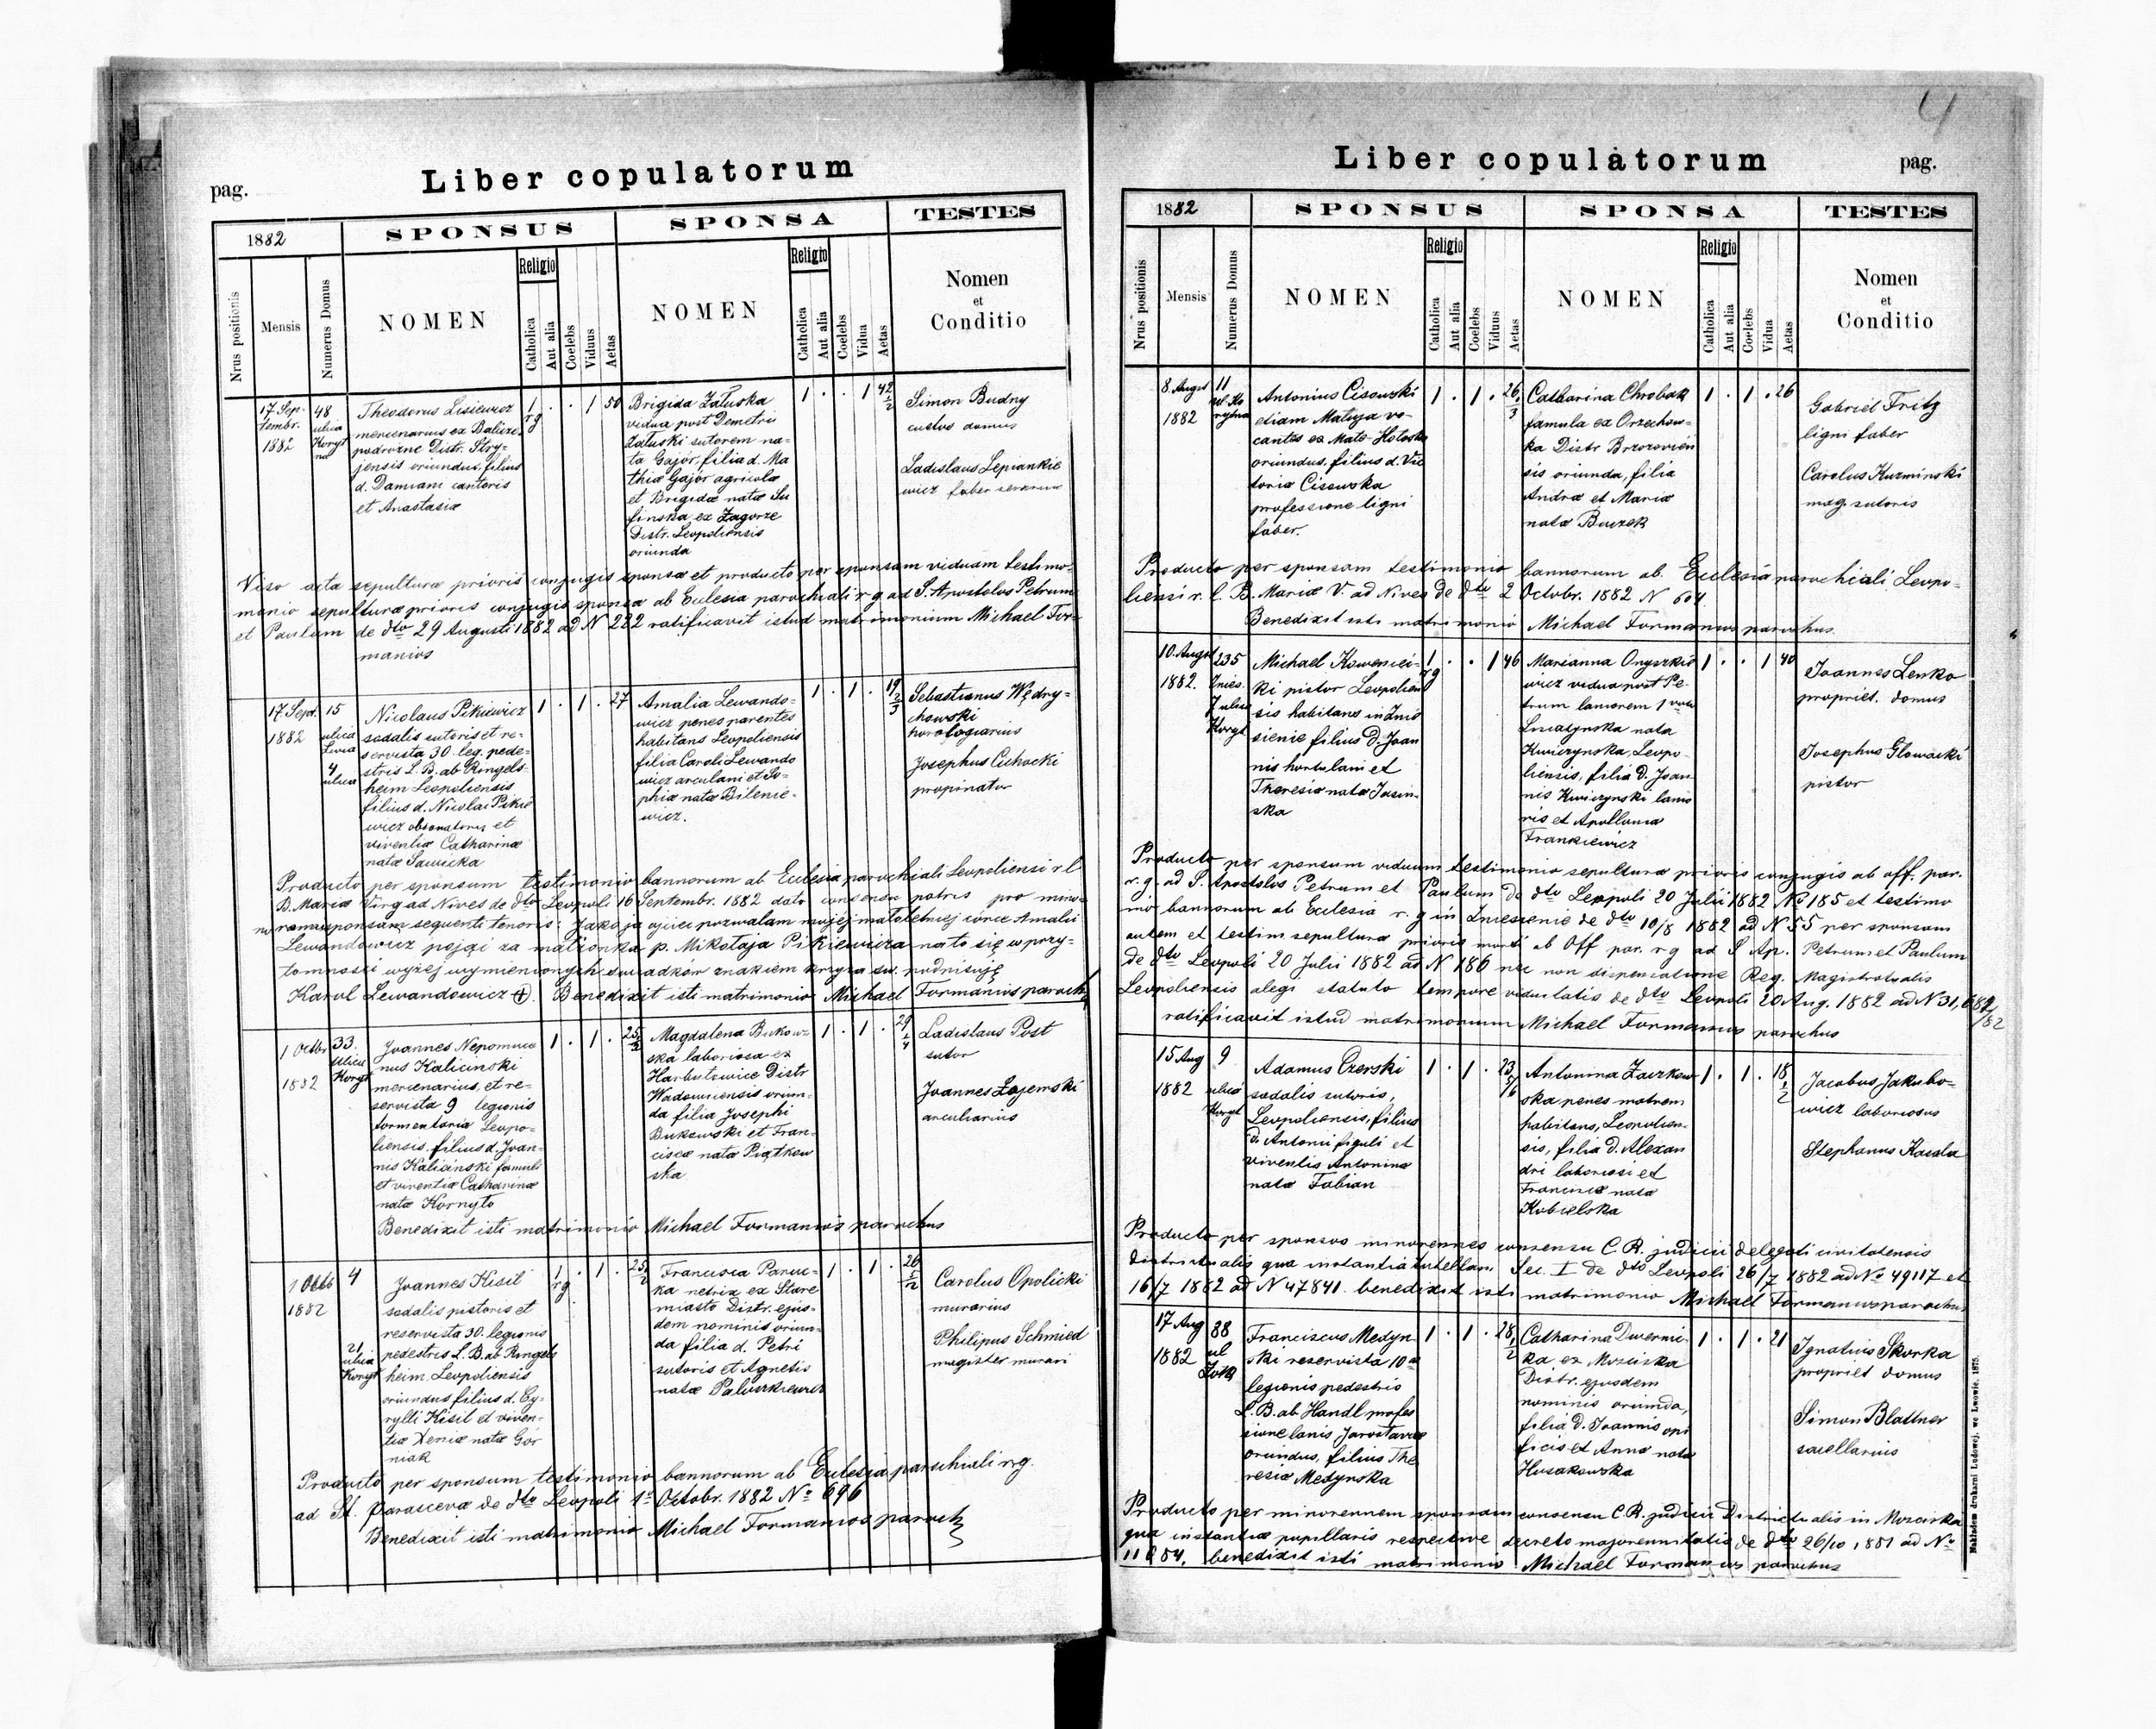 4
pag.
Liber copulatorum
1882
SPONSUS
SPONSA
TESTES
Nrus positionis
Mensis
Numerus Domus
NOMEN
Religio
Catholica
Aut alia
Coelebs
Viduus
Aetas
NOMEN
Religio
Catholica
Aut alia
Coelebs
Vidua
Aetas
Nomen
et
Conditio
17 Sep-
tembr.
1882
48
ulica
Theodorus Lisiewicz
mercenarius ex Balicze
podrożne Distr. Stry-
jensis oriundus, filius
d. Damiani cantoris
et Anastasiæ
1
rg
. . 1 50
Brigida Załuska
vidua post Demetri
Załuski sutorem na-
ta Gajór, filia d. Ma
thiæ Gajór agricolæ
et Brigidæ natæ Su
finska ex Zagorze
Distr. Leopoliensis
oriunda
1 . . 1 42
2
Simon Budny
custos domus
Ladislaus Lepiankie
wicz faber
Viso acta sepulturæ prioris conjugis sponsæ et producto per sponsam viduam testimo-
monio sepulturæ prioris conjugis sponsæ ab Eclesia parochiali r g ad S. Apostolos Petrum
et Paulum de dto 29 Augusti 1882 ad N 222 ratificavit istud matrimonium Michael For-
manios
17 Sept.
1882
15
ulica
4
ulica
Nicolaus Pikiewicz
sodalis sutoris et re-
servista 30 leg. pede-
stris L. B. ab Ringels-
heim Leopoliensis
filius d. Nicolai Pikie
wicz obsonatoris et
viventis Catharinæ
natæ Sawicka
1 . 1 . 27
Amalia Lewando-
wicz penes parentes
habitans Leopoliensis
filia Caroli Lewando
wicz arculani et So-
phiæ natæ Bilenie-
wicz.
1 . 1 . 19
3
Sebastianus Wędry-
chowski
horologiarius
Josephus Cichocki
propinator
Producto per sponsum testimonio bannorum ab Eclesia parochiali Leopoliensi r l
B. Mariæ Virg ad Nives de dto Leopoli 16 Septembr. 1882 dato consensu patris pro mino-
sponsam sequenti tenoris: Jako ja ojciec pozwalam mojej małoletniej córce Amalii
Lewandowicz pojąć za małżonka p. Mikołaja Pikiewicza na to się w przy-
tomności wyżej wymienionych świadków znakiem krzyża św. podpisuję
Karol Lewandowicz (+). Benedixit isti matrimonio Michael Formanios paroch
1 Octbr
1882
33.
ulica
Joannes Nepomuce
nus Kaliciński
mercenarius, et re-
servista 9 legionis
tormentaria Leopo-
liensis, filius d. Joan-
nis Kaliciński famuli
et viventis Catharinæ
natæ Kornyto
1 . 1 . 25
2
Magdalena Bukow-
ska laboriosa ex
Harbutowice Distr
Wadowicensis oriun-
da filia Josephi
Bukowski et Fran-
ciscæ natæ Piątkow
ska
1 . 1 . 29
4
Ladislaus Post
sutor
Joannes Łojemski
arculiarius
Benedixit isti matrimonio Michael Formanios parochus
1 Octb
1882
4
21
ulica
Joannes Kisil
sodalis pistoris et
reservista 30. legionis
pedestris L. B. ab Ringels
heim, Leopoliensis
oriundus filius d. Cy-
rylli Kisil et viven-
tis Xeniæ natæ Gór
niak
1
rg
. 1 . 25
2
Francisca Paruc-
ka netrix ex Stare
miasto Distr. ejus-
dem nominis oriun-
da filia d. Petri
sutoris et Agnetis
natæ Paluszkiewicz
1 . 1 . 26
2
Carolus Opolicki
murarius
Philipus Schmied
magister murari
Producto per sponsum testimonio bannorum ab Eclesia parochiali r.g.
ad St. Paraceva de dto Leopoli 1 Octobr. 1882 No 696
Benedixit isti matrimonio Michael Formanios paroch
Liber copulatorum
pag.
1882
SPONSUS
SPONSA
TESTES
Nrus positionis
Mensis
Numerus Domus
NOMEN
Religio
Catholica
Aut alia
Coelebs
Viduus
Aetas
NOMEN
Religio
Catholica
Aut alia
Coelebs
Vidua
Aetas
Nomen
et
Conditio
8 August
1882
11
ul. Ko
rytna
Antonius Cisowski
etiam Matyja vo-
cantis ex Mało-Hołosko
oriundus, filius d. Vic
toriæ Cisowska
professione ligni
faber.
1 . 1 . 26
3
Catharina Chrobak
famula ex Orzechow-
ka Distr Brzozovien
sis oriunda, filia
Andræ et Mariæ
natæ Buczek
1 . 1 . 26
Gabriel Fritz
ligni faber
Carolus Kuzminski
mag. sutoris
Producto per sponsam testimonio bannorum ab Eclesia parochiali Leopo-
liensi r. l. B. Mariæ V. ad Nives de dto 2 Octobr. 1882 N 604.
Benedixit isti matrimonio Michael Formanios parochus.
10. August
1882.
235
Michael Kowenici-
ki pistor Leopolien
sis habitans in Znie
sienie filius d. Joan
nis hortulani et
Theresiæ natæ Jasin-
ska
1
rg
. . 1 46
Marianna Onyszkie
wicz vidua post Pe-
trum laniorem 1 voto
Sniatynska nata
Kwiczynska, Leopo-
liensis, filia d. Joan-
nis Kwiczynski lanio
ris et Apolloniæ
Frankiewicz
1 . . 1 40
Joannes Lenko
propriet. domus
Josephus Glowacki
pistor
Producto per sponsum viduum testimonio sepulturæ prioris conjugis ab off. par.
r. g. ad S. Apostolos Petrum et Paulum de dto Leopoli 20 Julii 1882 No 185 et testimo
nio bannorum ab Eclesia r. g in Zniesienie de dto 10/8 1882 ad N 55 per sponsam
autem et testim. sepulturæ prioris mariti ab Off par. r g ad S Ap. Petrum et Paulum
de dto Leopoli 20 Julii 1882 ad N 186 nec non dispensatione Reg. Magistratualis
Leopoliensis alegi statuto tempore viduitatis de dto Leopoli 20 Aug. 1882 ad N 31,682
/82
ratificavit istud matrimonium Michael Formanios parochus
15 Aug
1882
9
ulica
Adamus Czerski
sodalis sutoris,
Leopoliensis, filius
d. Antonii figuli et
viventis Antoninæ
natæ Fabian
1 . 1 . 23
5/6
Antonina Zaczkow
ska penes matrem
habitans, Leopolien-
sis, filia d. Alexan
dri laboriosi et
Franciscæ natæ
Kobielska
1 . 1 . 18
2
Jacobus Jakubo-
wicz laboriosus
Stephanus Kasala
Producto per sponsos minorennes consensu C. R. judicii delegati civitatensis
districtualis qua instantia tutellam Sec. I de dto Leopoli 26/7 1882 ad No 49117 et
16/7 1882 ad N 47841. benedixit isti matrimonio Michael Formanios parochus
17 Aug
1882
88
ul
Franciscus Medyn
ski reservista 10
legionis pedestris
L. B. ab Handl profes
sione lanis Jaroslaviæ
oriundus, filius The
resiæ Medynska
1 . 1 . 28
2
Catharina Dwerni-
ka, ex Mosciska
Distr. ejusdem
nominis oriunda,
filia d. Joannis opi
ficis et Annæ natæ
Husakowska
1 . 1 . 21
Ignatius Skorka
propriet domus
Simon Blattner
sacellarius
Producto per minorennem sponsam consensu C. R. judicii Districtualis in Mosciska
qua instantiæ pupillaris respective decreto majorennitatis de dto 26/10 1881 ad No
11654, benedixit isti matrimonio Michael Formanios parochus
Nakładem drukarni Ludowej, we Lwowie. 1875.